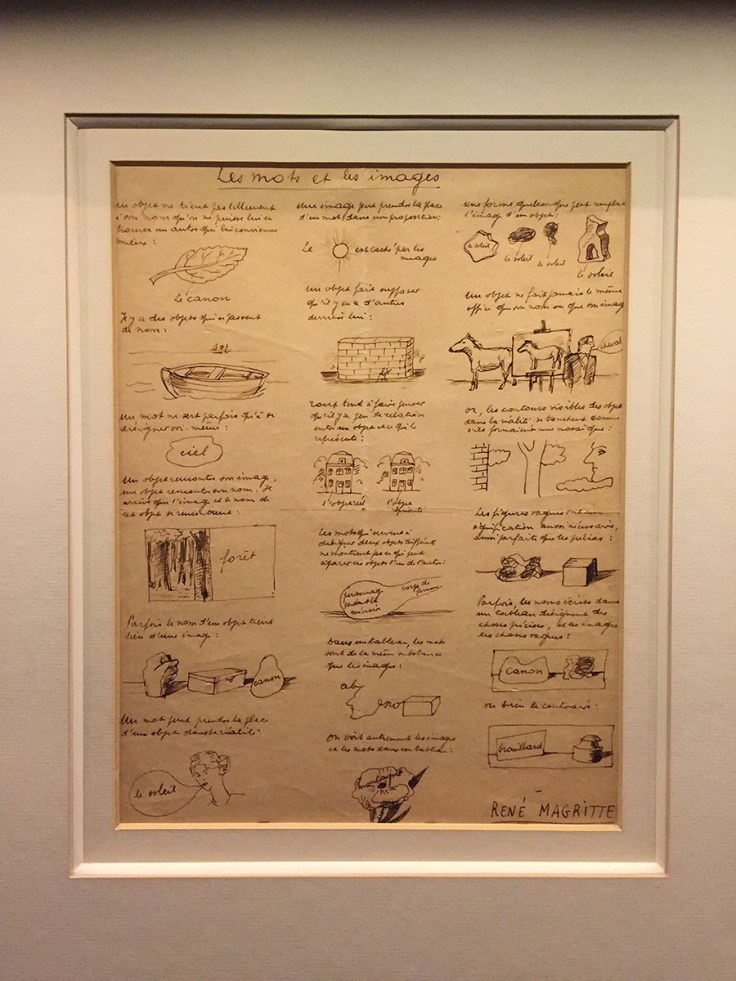 Les mots et les images
Un objet ne tient pas tellement
à son nom qu'on ne puisse lui en
trouver un autre qui lui convienne
mieux :
Le canon
Il y a des objets qui se passent
de nom :
Un mot ne sert parfois qu'à se
désigner soi-même :
ciel
Un objet rencontre son image,
un objet rencontre son nom. Il
arrive que l'image et le nom de
cet objet se rencontrent :
forêt
Parfois le nom d'un objet tient
lieu d'une image :
canon
Un mot peut prendre la place
d'un objet dans la réalité :
le soleil
Une image peut prendre la place
d'un mot dans une proposition :
Le
est caché par les
nuages
Un objet fait supposer
qu'il y en a d'autres
derrière lui :
Tout tend à faire penser
qu'il y a peu de relation
entre un objet et ce qui le
représente :
l'objet réel
l'objet
représenté
Les mots qui servent à
désigner deux objets différents
ne montrent pas ce qui peut
séparer ces objets l'un de l'autre :
personnage
perdant la
mémoire
corps de
femme
Dans un tableau, les mots
sont de la même substance
que les images :
On voit autrement les images
et les mots dans un tableau :
Une forme quelconque peut remplacer
l'image d'un objet :
le soleil
le soleil
le soleil
le soleil
Un objet ne fait jamais le même
office que son nom ou que son image
cheval
Or, les contours visibles des objets
dans la réalité, se touchent comme
s'ils formaient une mosaïque :
Les figures vagues ont une
signification aussi nécessaire,
aussi parfaite que les précises :
Parfois, les noms écrits dans
un tableau désignent des
choses précises, et les images
des choses vagues :
canon
ou bien le contraire :
brouillard
RENÉ MAGRITTE